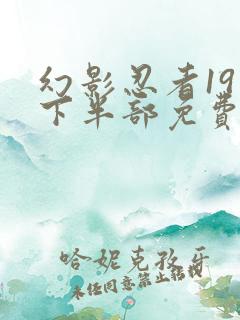 幻影忍者19
下半部免費
哈妮克孜牙
未经同意禁止搭我